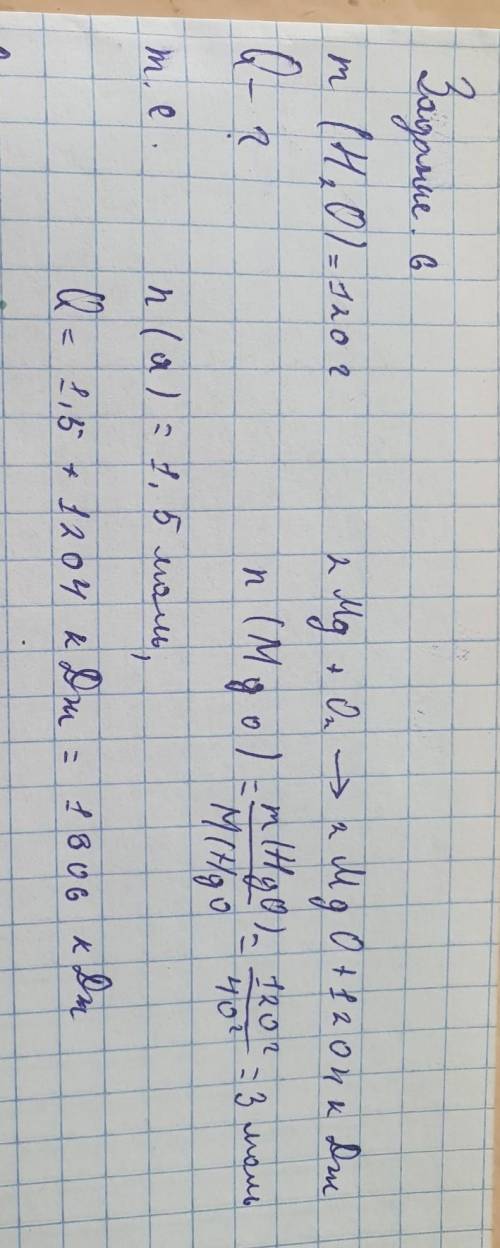 Задание. 6
m (H₂O) = 120 г 2 Mg + O₂ → 2 MgO + 1204 кДж
Q - ? n (MgO) = m(HgO)/M(HgO = 120г/40г = 3 моль
т.е. n(я) = 1,5 моль,
Q = 1,5 * 1204 кДж = 1806 кДж